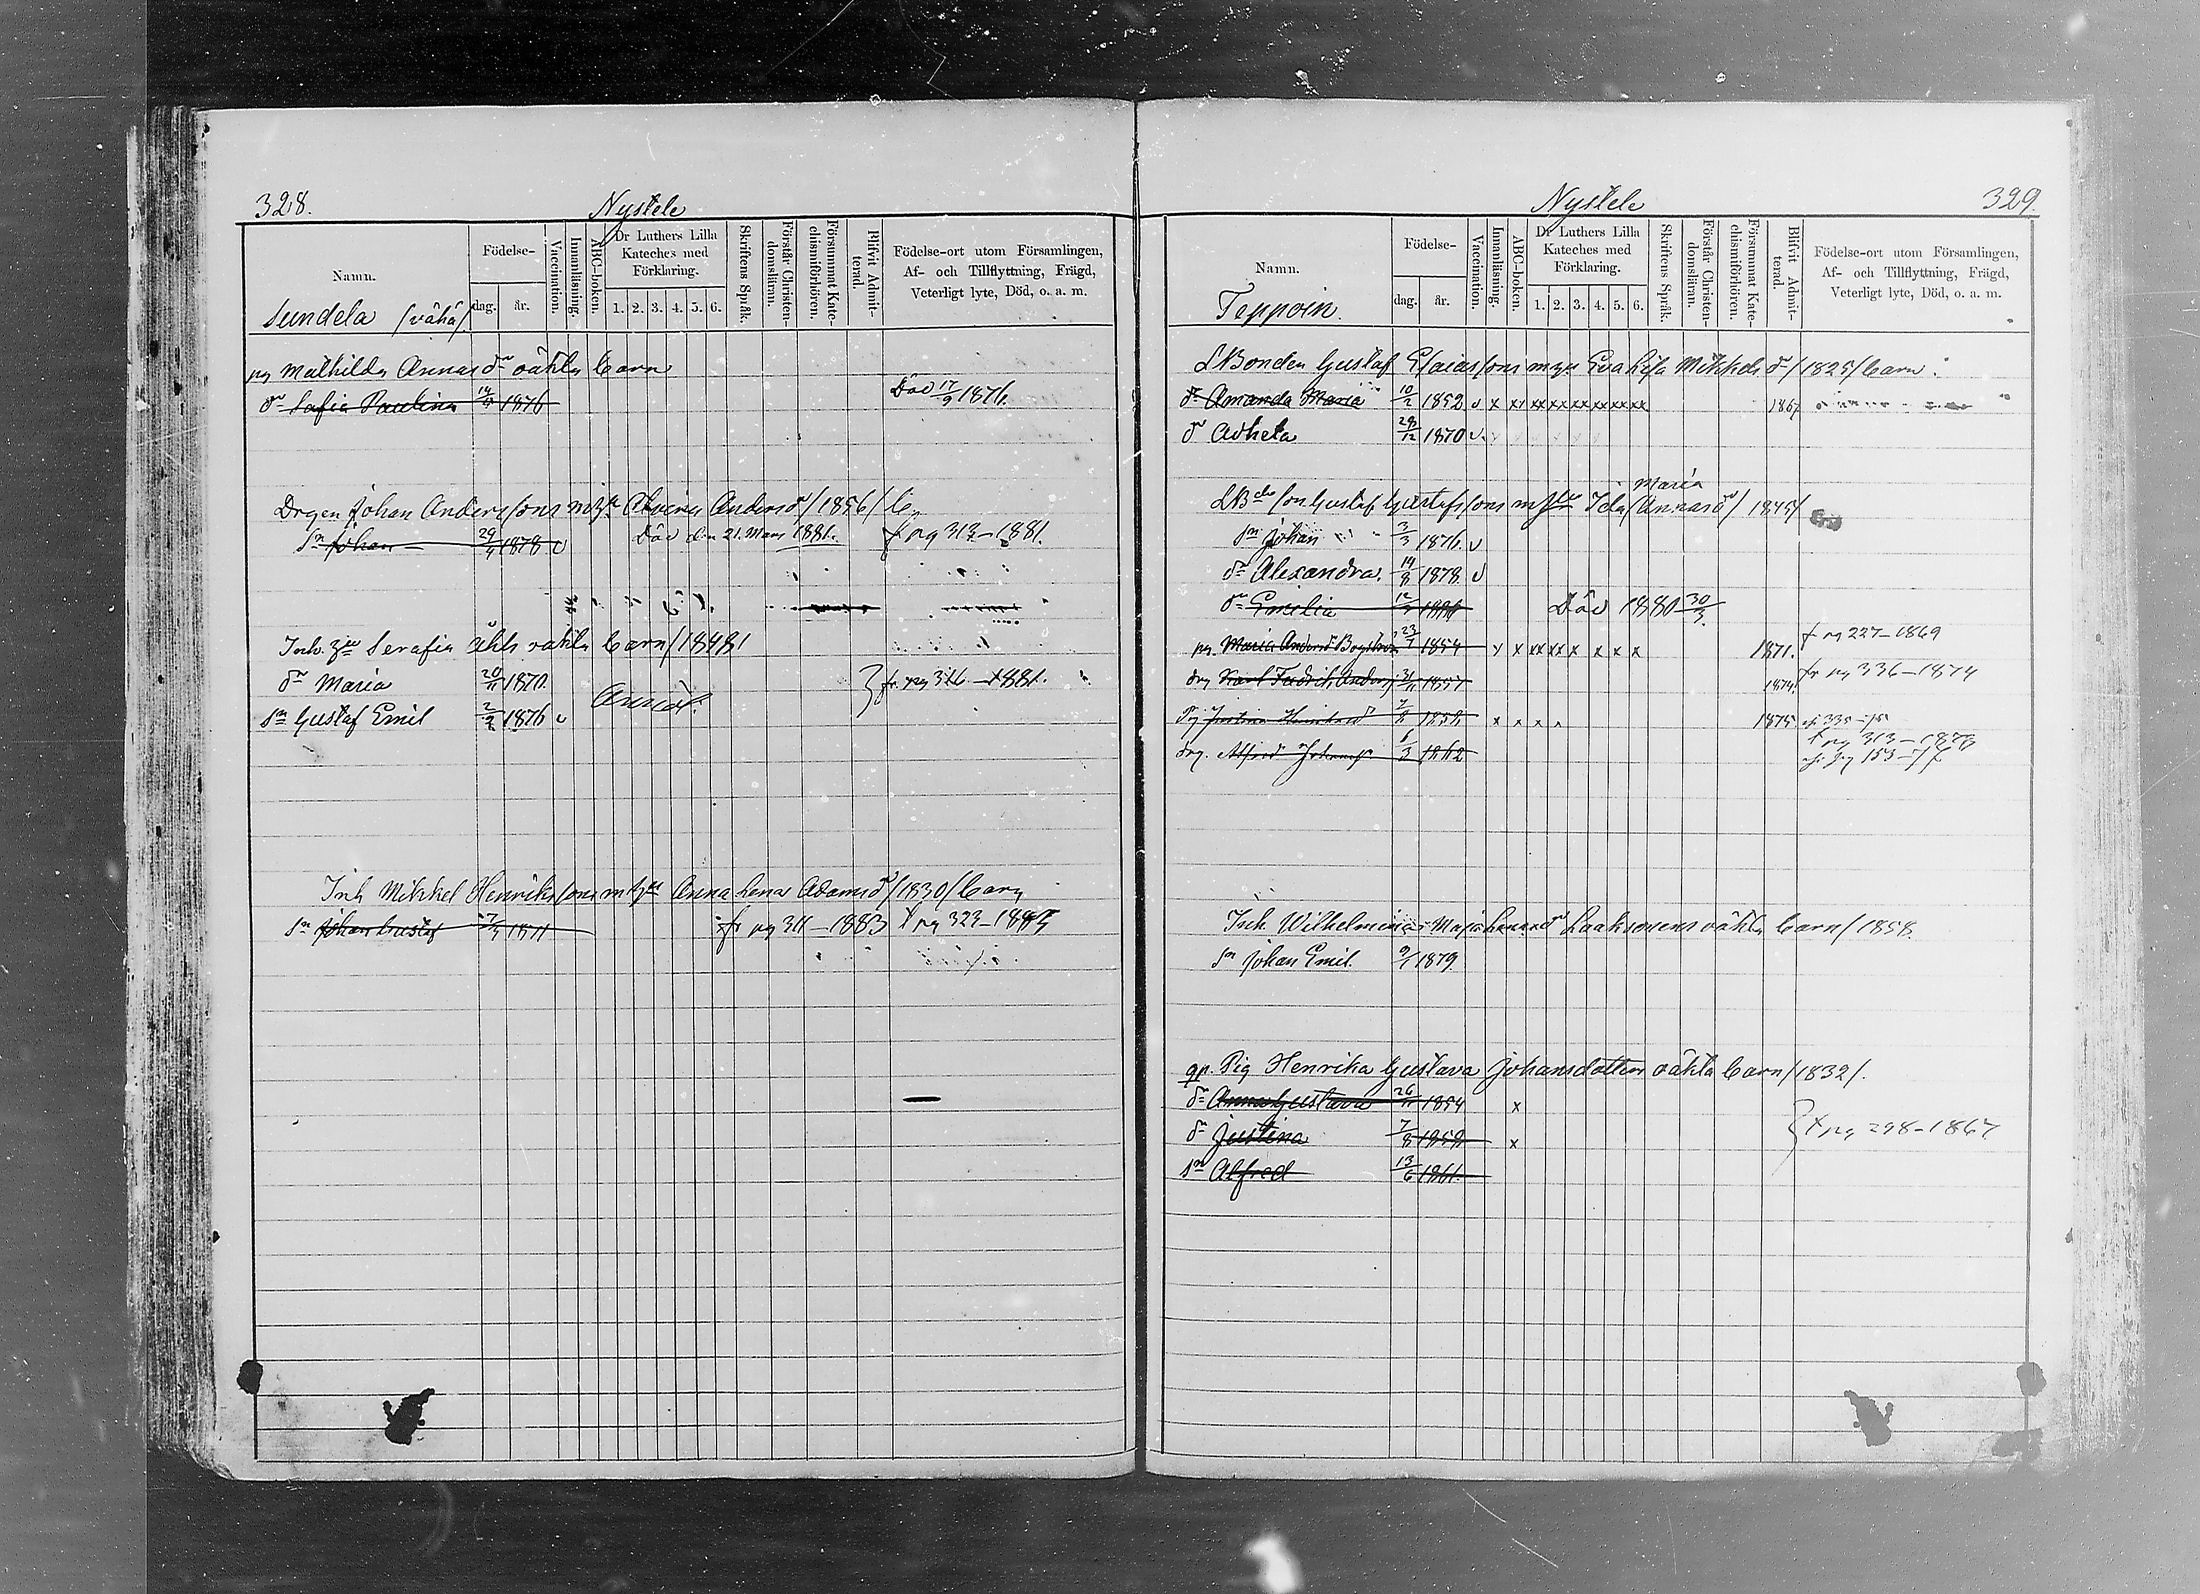 328.
Nystele
Namn.
Födelse-
dag.
år.
Vaccination.
Innanläsning.
ABC-boken.
Dr Luthers Lilla Kateches med Förklaring.
1. 2. 3. 4. 5. 6.
Skriftens Språk.
Förstår Christen-domsläran.
Försummat Kate-chismiförhören.
Blifvit Admit-terad.
Födelse-ort utom Församlingen,
Af- och Tillflyttning, Frägd,
Veterligt lyte, Död, o. a. m.
Sundela (vähä)
pg Mathilda Annasdr oäkta barn
dr Sofia Paulina 1876 Död 17/9 1876.
Drgen Johan Andersons m hu Alvina Andersdr /1856/ b.
Sn Johan 1878 v Död den 21. Mars 1881. fr pg 313-1881.
Inh. Serafia oäkta barn /1848/
dr Maria 20/11 1870. fr. pg 316-1881.
Sn Gustaf Emil 1876 v
Inh Mikkel Henriksons m hu Anna Lena Adamsdr /1830/ barn
Sn Johan Gustaf fr pg 311-1883 t pg 323-
329.
Nystele
Namn.
Födelse-
dag.
år.
Vaccination.
Innanläsning.
ABC-boken.
Dr Luthers Lilla Kateches med Förklaring.
1. 2. 3. 4. 5. 6.
Skriftens Språk.
Förstår Christen-domsläran.
Försummat Kate-chismiförhören.
Blifvit Admit-terad.
Födelse-ort utom Församlingen,
Af- och Tillflyttning, Frägd,
Veterligt lyte, Död, o. a. m.
Teppoin.
LBonden Gustaf Esaiassons m hu Eva Lisa Mikkelsdr /1825/ barn.
dr Amanda Maria 10/2 1852 v x xx xx xx xx xx xx xx 1867
dr Adhela 28/12 1870 v
Maria
LBde son Gustaf Gustafssons m hu Ida Annasdr /1845/
Sn Johan 3/3 1876. v
dr Alexandra. 14/8 1878. v
dr Emilia Död 1880 30/3.
pg. Maria Andersdr 1854 x x xx xx x x x x 1871. fr pg 227-1869
drg Karl Fredrik 1857 1874. fr pg 336-1874
Pig Justina 7/8 1858 x x x x 1875 335-75
t pg 313-1876
drg. Alfred 1862 pg 153-77
Inh. Wilhelmina Majalenasdr Laaksonens oäkta barn /1858.
Sn Johan Emil. 9/1 1879.
gp. Pig Henrika Gustava Johansdotters oäkta barn /1832/.
dr Anna Gustava 26/11 1854 x
dr Justina 7/8 1858 x t pg 298-1867
Sn Alfred 13/6 1861.